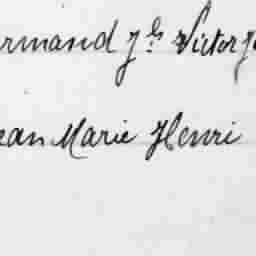 ermand Jh Victor Jo
ean Marie Henri